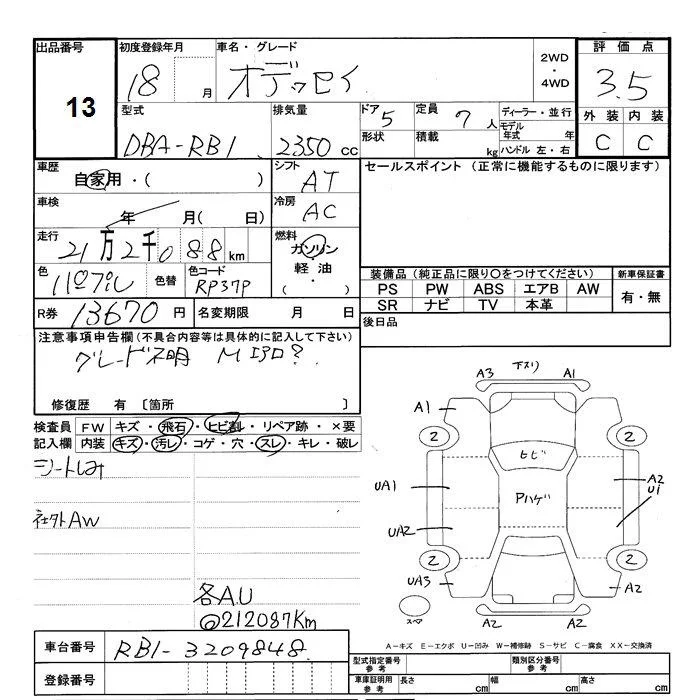 出品番号
13
初度登録年月
18 月
車名・グレード
オデッセイ
2WD
・
4WD
評価点
3.5
外装 内装
C C
型式
DBA-RB1
排気量
2350 cc
ドア 5
形状
定員 7 人
積載 kg
ディーラー・並行
モデル年式 年
ハンドル 左・右
車歴
自家用・( )
シフト
AT
車検
年 月( 日)
冷房
AC
走行
21万2千088 km
燃料
ガソリン
・
軽油
( ・ )
色
パープル
色替
色コード
RP37P
R券 13670 円
名変期限 月 日
セールスポイント (正常に機能するものに限ります)
装備品 (純正品に限り○をつけてください)
PS PW ABS エアB AW
SR ナビ TV 本革
新車保証書
有・無
後日品
注意事項申告欄(不具合内容等は具体的に記入して下さい)
グレード不明 Mエアロ?
修復歴 有 〔箇所 〕
検査員記入欄
FW キズ・飛石・ヒビ割・リペア跡・×要
内装 キズ・汚レ・コゲ・穴・スレ・キレ・破レ
シートしみ
社外AW
各A.U
@212087Km
下スリ
A3 A1
A1
2 2
ヒビ
UA1
Pハゲ
A2
U1
UA2
2 2
UA3
A2
スペア
A2 A2
A-キズ E-エクボ U-凹み W-補修跡 S-サビ C-腐食 XX-交換済
車台番号
RB1-3209848
登録番号
型式指定番号
参考
類別区分番号
参考
車庫証明用
参考
長さ cm 幅 cm 高さ cm